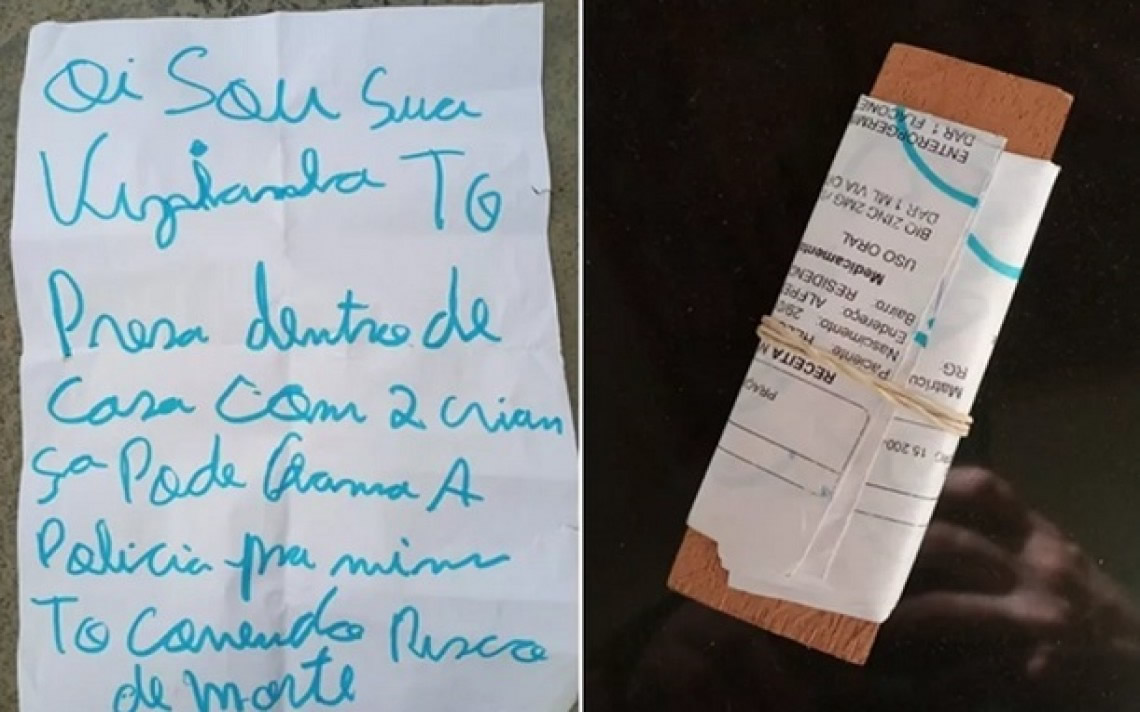 Oi Sou Sua
Vizianha TO
Presa dentro de
Casa Com 2 crian
ça Pode Chama A
Policia pra mim
To Correndo Risco
de morte
ENTEROGERM
DAR 1 FLACONE
BIO ZINC 2MG/
DAR 1 ML VIA O
USO ORAL
Medicamento
Bairro: RESIDENC
Endereço: ALFRE
Nascimento: 29/
Paciente:
RECEITA
RG:
Matricu
15.200-